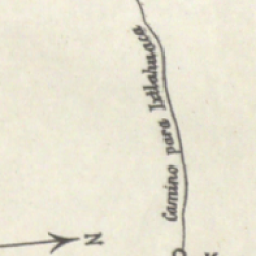 Camino para Ixtlahuaca
N